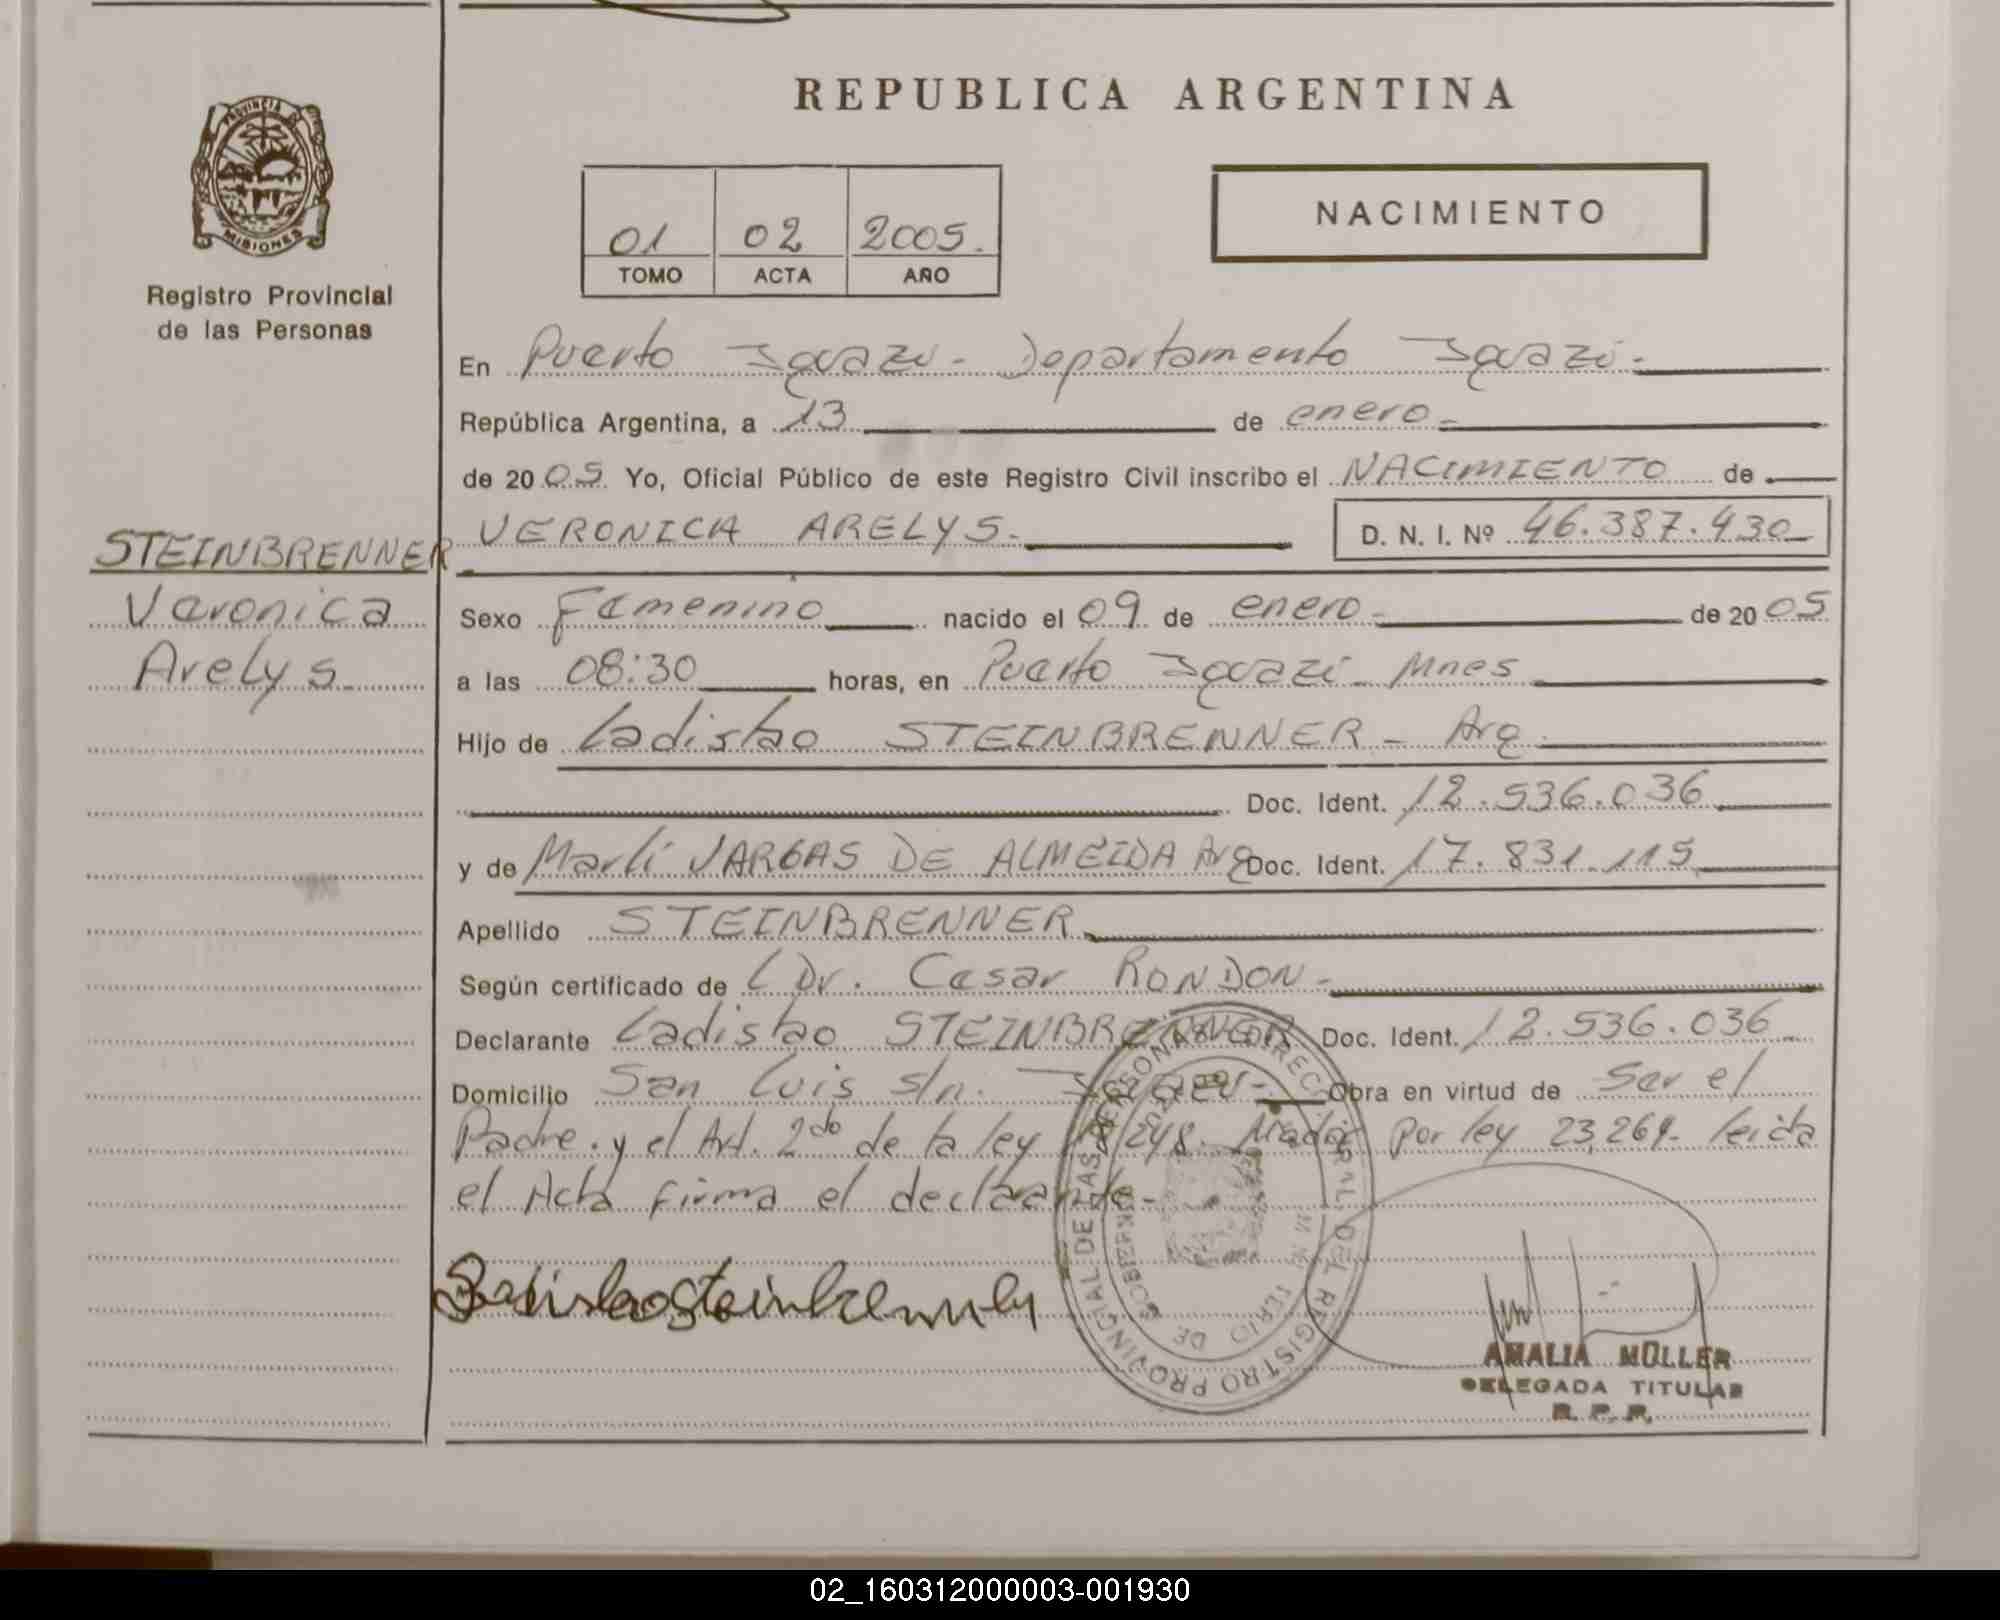 REPUBLICA ARGENTINA
PROVINCIA DE MISIONES
Registro Provincial
de las Personas
01 02 2005.
TOMO ACTA AÑO
NACIMIENTO
En Puerto Iguazú - Departamento Iguazú -
República Argentina, a 13 de enero -
de 2005 Yo, Oficial Público de este Registro Civil inscribo el NACIMIENTO de
VERONICA ARELYS. D. N. I. Nº 46.387.430
STEINBRENNER
Veronica
Arelys
Sexo Femenino nacido el 09 de enero - de 2005
a las 08:30 horas, en Puerto Iguazú - Mnes
Hijo de Ladislao STEINBRENNER - Arg.
Doc. Ident. 12.536.036
y de Marli VARGAS DE ALMEIDA Arg Doc. Ident. 17.831.115
Apellido STEINBRENNER
Según certificado de Dr. Cesar RONDON -
Declarante Ladislao STEINBRENNER Doc. Ident. 12.536.036
Domicilio San Luis s/n. Iguazú - Obra en virtud de Ser el
Padre. y el Art. 2do de la ley 248. Madre por ley 23,264. leida
el Acta firma el declarante -
Ladislao Steinbrenner
REGISTRO PROVINCIAL DE LAS PERSONAS
AMALIA MÜLLER
DELEGADA TITULAR
R. P. P.
02_160312000003-001930